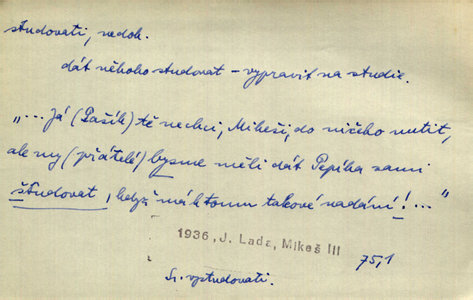 studovati, nedok.
dát někoho studovat – vypravit na studie.
„... Já (Pašík) tě nechci, Mikeši, do ničeho nutit,
ale my (přátelé) bysme měli dát Pepíka sami
študovat, když má k tomu takové nadání! ..."
1936, J. Lada, Mikeš III
75,1
Sr. vystudovati.